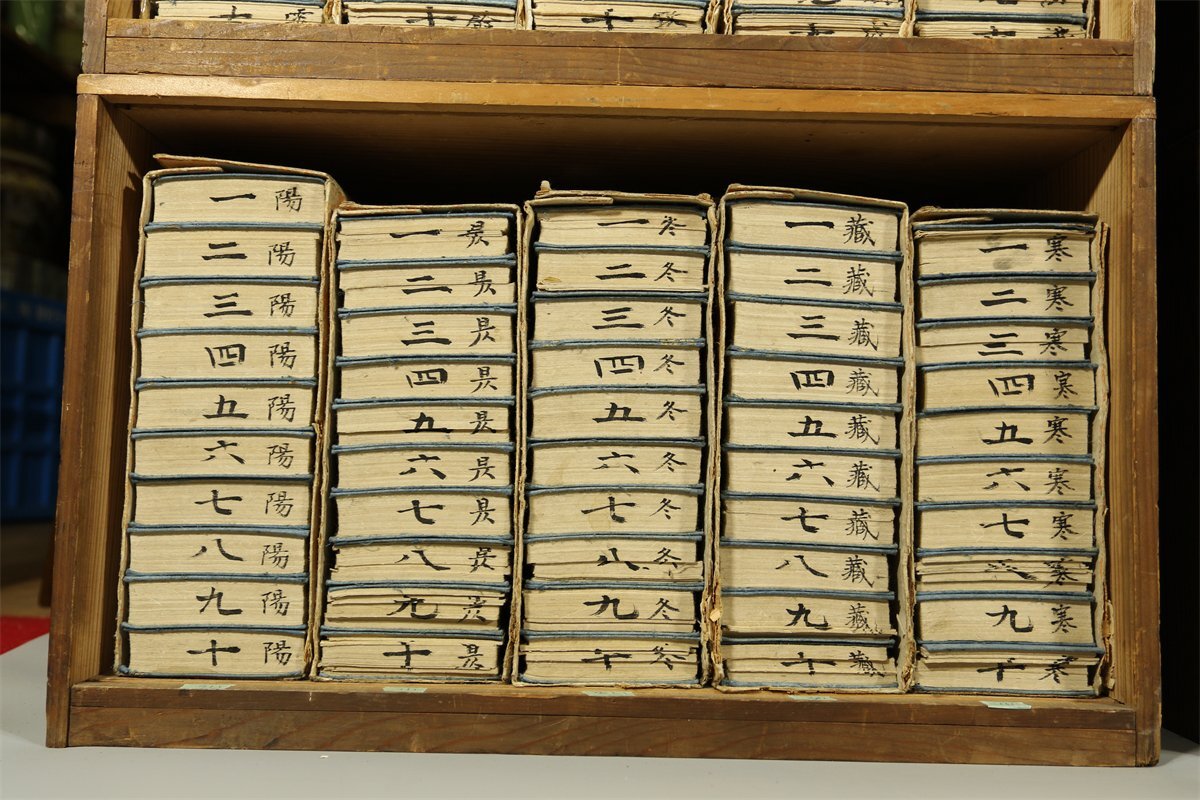 一 陽
二 陽
三 陽
四 陽
五 陽
六 陽
七 陽
八 陽
九 陽
十 陽
一 昃
二 昃
三 昃
四 昃
五 昃
六 昃
七 昃
八 昃
九 昃
十 昃
一 冬
二 冬
三 冬
四 冬
五 冬
六 冬
七 冬
八 冬
九 冬
十 冬
一 藏
二 藏
三 藏
四 藏
五 藏
六 藏
七 藏
八 藏
九 藏
十 藏
一 寒
二 寒
三 寒
四 寒
五 寒
六 寒
七 寒
八 寒
九 寒
十 寒